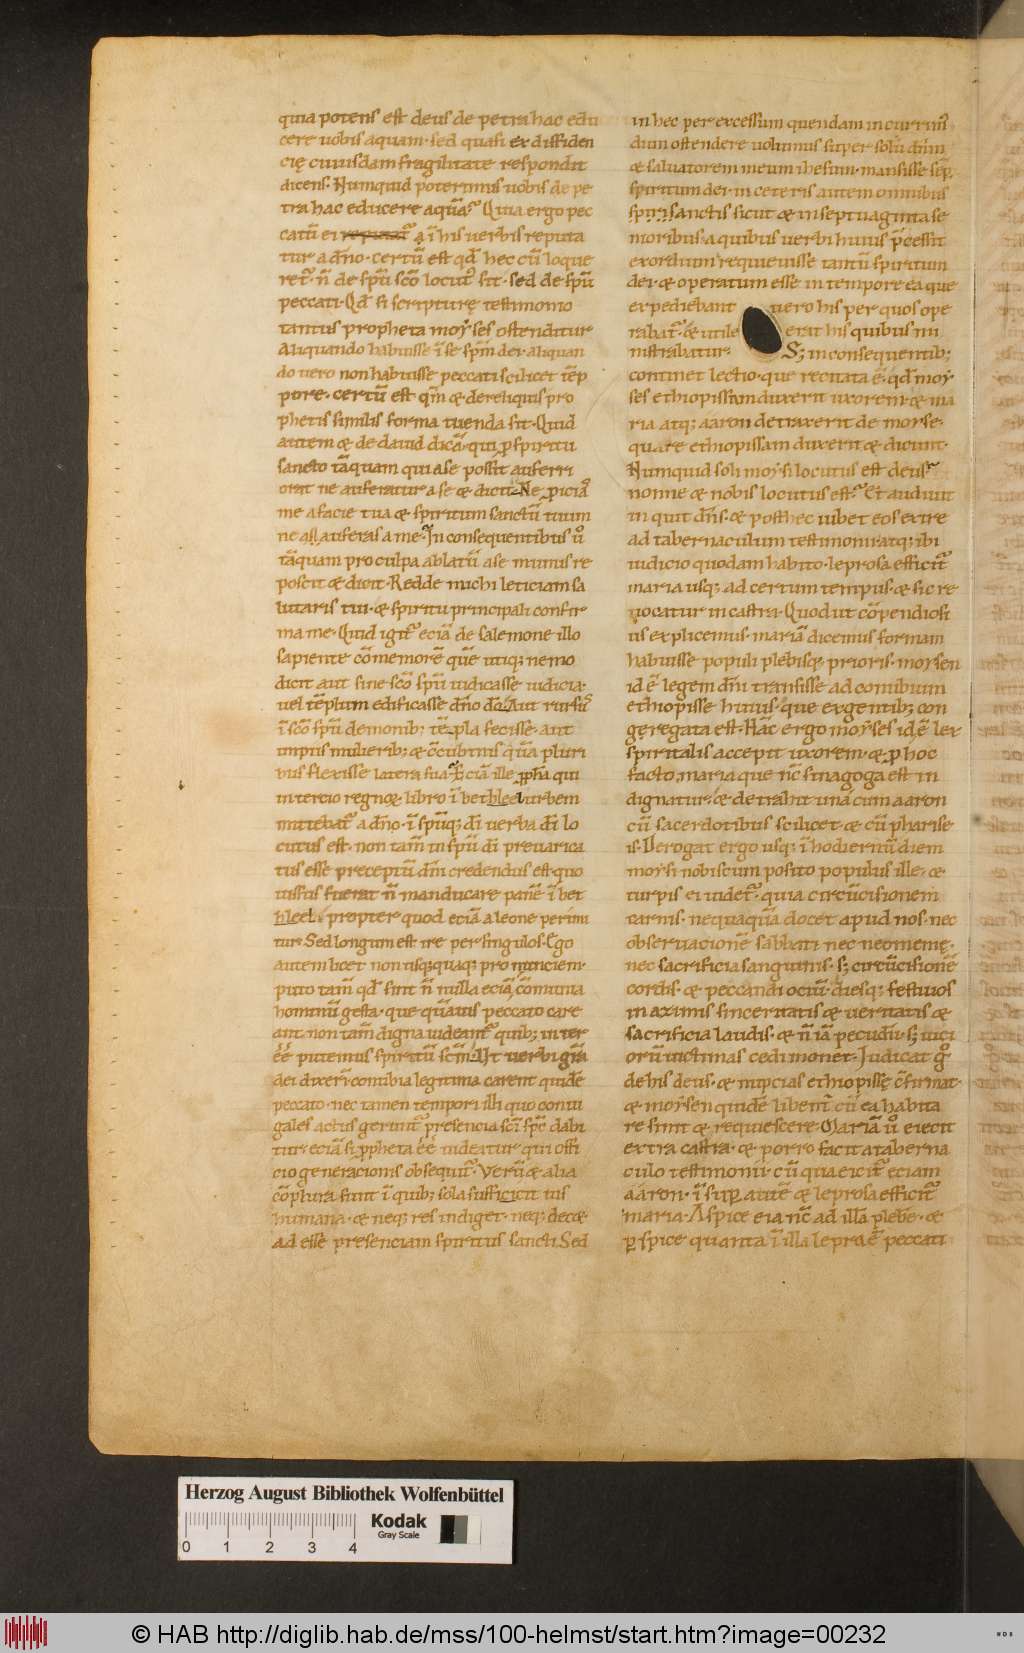 quia potens est deus de petra hac edu
cere uobis aquam. sed quasi ex diffiden
cię cuiusdam fragilitate respondit
dicens. Numquid poterimus uobis de pe
tra hac educere aquā. Quia ergo pec
catū ei īhis uerbis reputa
tur a dn̄o. certū est qd̄ hec cū loque
ret. n̄ de sp̄u sc̄o locut sit. sed de sp̄u
peccati. Qd̄ si scripturę testimonio
tantus propheta moyses ostenditur
Aliquando habuisse ī se sp̄m dei. aliquan
do uero non habuisse peccati scilicet tēp
pore. certū est qm̄ & de reliquis pro
phetis similis forma tuenda sit. Quid
autem & de dauid dicā. qui p spiritu
sancto tāquam qui a se possit auferri
orat ne auferatur a se & dicit. Ne piciā
me a facie tua & spiritum sanctū tuum
ne auferas a me. In consequentibus u
tāquam pro culpa ablatū a se munus re
poscit & dicit. Redde michi leticiam sa
lutaris tui. & spiritu principali confir
ma me. Quid igit eciā de salemone illo
sapiente cōmemorē quē utiq; nemo
dicit aut sine sc̄o sp̄u iudicasse iudicia.
uel tēplum edificasse dn̄o dō. Aut rursū
ī sc̄o sp̄u demonib; tēpla fecisse. aut
impiis mulierib; & cubitus quā pluri
bus flexisse latera sua. eciā ille ppha qui
in tercio regnoꝝ libro ī bethleel urbem
mittebat a dn̄o. ī spū q; di uerba di lo
cutus est. non tam̄ in sp̄u di preuarica
tus esse preceptū dn̄i credendus est. quo
iussus fuerat n̄ manducare panē ī bet
hleel. propter quod eciā a leone perimi
tur. Sed longum est ire per singulos. Ego
autem licet non usq;quaq; pronunciem.
puto tam̄ qd̄ sint n̄ nulla eciā cōmunia
hominū gesta. que quāuis peccato care
ant non tam̄ digna uideant quib; inter
ēē putemus spiritū sc̄m. Ut uerbi grā
dei dixeri. conubia legitima carent quidē
peccato. nec tamen tempori illi quo coniu
gales actus gerunt presencia sc̄i spc̄ dabi
tur. eciā si ppheta ēē uideatur qui offi
cio generacionis obsequit. Verū & alia
cōplura sunt ī quib; sola sufficit uis
humana. & neq; res indiget. neq; decet.
ad esse presenciam spiritus sancti. Sed
in hec per excessum quendam incurrim
dum ostendere uolumus super solū dn̄m
& saluatorem meum ihesum. mansisse sep
spiritum dei. in ceteris autem omnibus
sanctis sicut & in septuaginta se
nioribus. a quibus uerbi huius pcessit
exordium requieuisse tantū spiritum
dei. & operatum esse in tempore ea que
expediebant uero his per quos ope
rabat. & utile erat his quibus mi
nistrabatur. S; in consequentib;
continet lectio. que recitata ē. qd̄ moy
ses ethiopissam duxerit uxorem. & ma
ria atq; aaron detraxerit de moyse.
quare ethiopissam duxerit & dicunt.
Numquid soli moysi locutus est deus.
nonne & nobis locutus est. Et audiuit
inquit dn̄s. & post hec iubet eos exire
ad tabernaculum testimonii atq; ibi
iudicio quodam habito. leprosa efficit
maria usq; ad certum tempus. & sic re
uocatur in castra. Quod ut cōpendiosi
us explicemus. mariā dicemus formam
habuisse populi plebisq; prioris. moysen
id ē legem dn̄i transisse ad conubium
ethiopisse huius. que ex gentib; con
gregata est. Hāc ergo moyses id ē lex
spiritalis accepit uxorem. & p hoc
facto. maria que nc̄ sinagoga est in
dignatur. & detrahit una cum aaron
cū sacerdotibus scilicet. & cū pharise
is. Derogat ergo usq; ī hodiernū diem
moysi nobiscum posito populus ille. &
turpis ei uidet. quia circūcisionem
carnis. nequaquā docet apud nos. nec
obseruacionē sabbati nec neomenię.
nec sacrificia sanguinis. s; circūcisionē
cordis. & peccandi ociū. diesq; festiuos
in azimis sinceritatis & ueritatis &
sacrificia laudis. & n̄ iā pecudū. s; uici
orū uictimas cedi monet. Iudicat g
de his deus. & nupcias ethiopissę cfirmat.
& moysen quidē libent cū ea habita
re sinit & requiescere. Mariā u eiecit
extra castra. & porro facit a taberna
culo testimonii. cū qua eicit eciam
aaron. ī sup autē & leprosa efficit
maria. Aspice eia nc̄ ad illā plebē. &
pspice quanta ī illa lepra ē peccati
Herzog August Bibliothek Wolfenbüttel
Kodak
Gray Scale
0 1 2 3 4
© HAB http://diglib.hab.de/mss/100-helmst/start.htm?image=00232